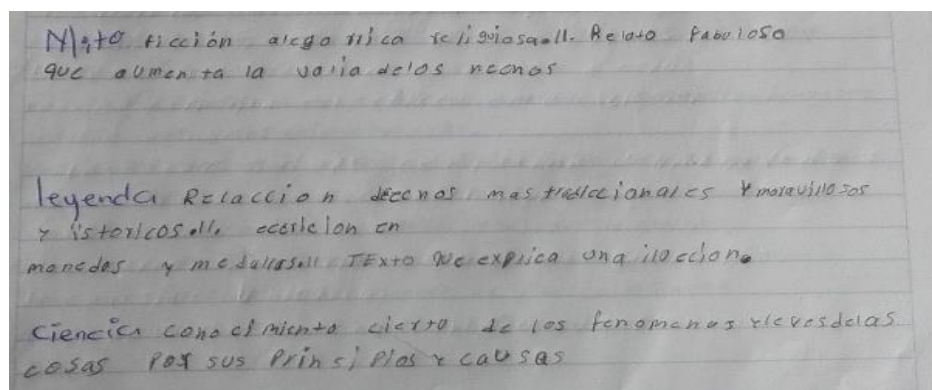 Mito ficción alegorrica religiosa.ll. Relato Fabuloso
que aumenta la valia delos hechos
leyenda Relaccion deechos mas tradicionales Y maravillosos
Y istoricos.ll. escricion en
monedas y medallas.ll TExto que explica una iloccion.
Ciencia conocimiento cierto de los fenomenos Yleyesdelas
cosas Por sus Prinsiplos Y causas